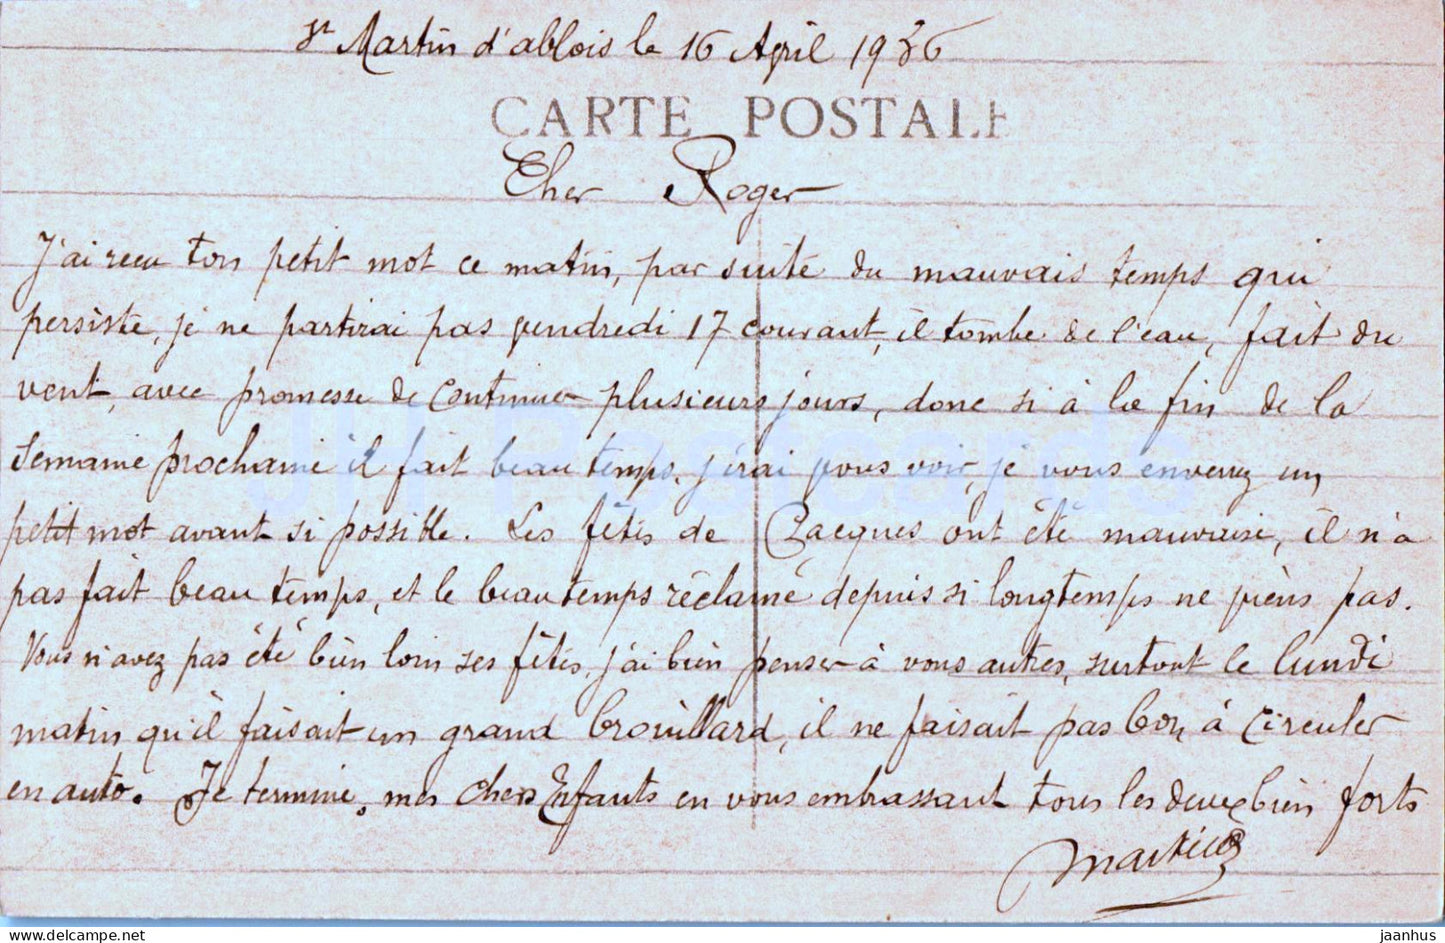 St Martin d'ablois le 16 April 1936
CARTE POSTALE
Cher Roger
J'ai reçu ton petit mot ce matin, par suite du mauvais temps qui
persiste, je ne partirai pas vendredi 17 courant, il tombe de l'eau, fait du
vent, avec promesse de continuer plusieurs jours, donc si à la fin de la
semaine prochaine il fait beau temps, j'irai vous voir, je vous enverrez un
petit mot avant si possible. Les fêtes de Pacques ont été mauvaise, il n'a
pas fait beau temps, et le beau temps réclamé depuis si longtemps ne viens pas.
Vous n'avez pas été bien loin ses fêtes, j'ai bien penser à vous autres, surtout le lundi
matin qu'il faisait un grand brouillard, il ne faisait pas bon à circuler
en auto. Je termine, mes chers Enfants en vous embrassant tous les deux bien forts
JH Postcards
jaanhus on www.delcampe.net
jaanhus